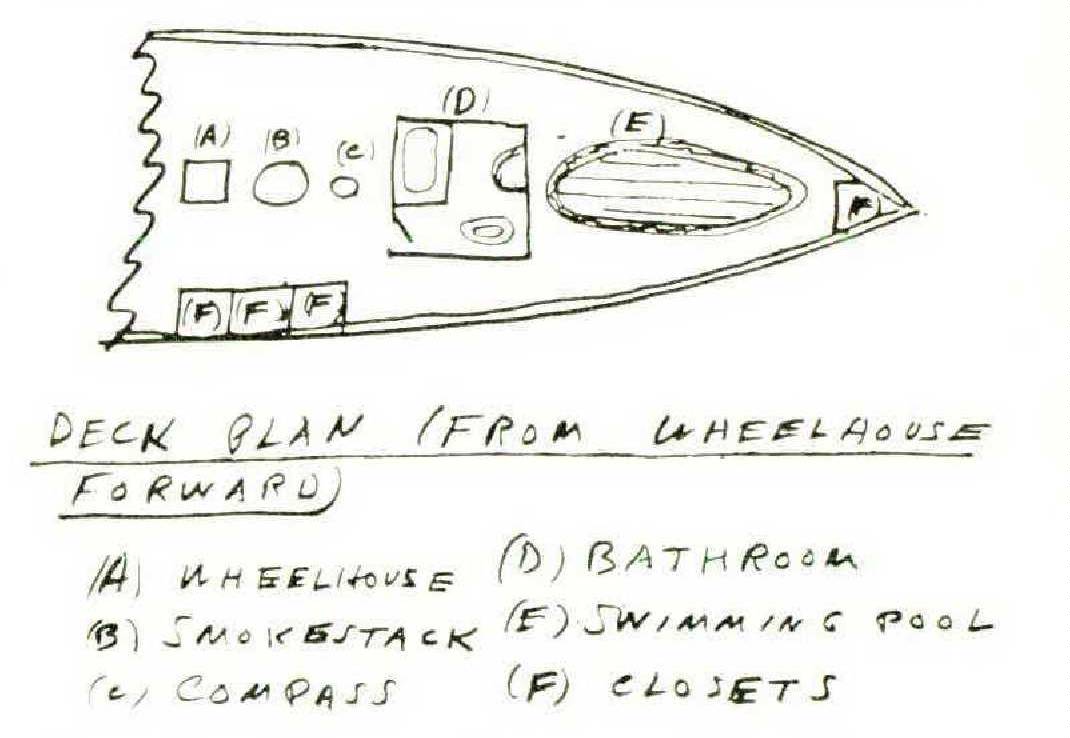 (D)
(E)
(A) (B) (C)
(F)
(F) (F) (F)
DECK PLAN (FROM WHEELHOUSE
FORWARD)
(A) WHEELHOUSE (D) BATHROOM
(B) SMOKESTACK (E) SWIMMING POOL
(C) COMPASS (F) CLOSETS